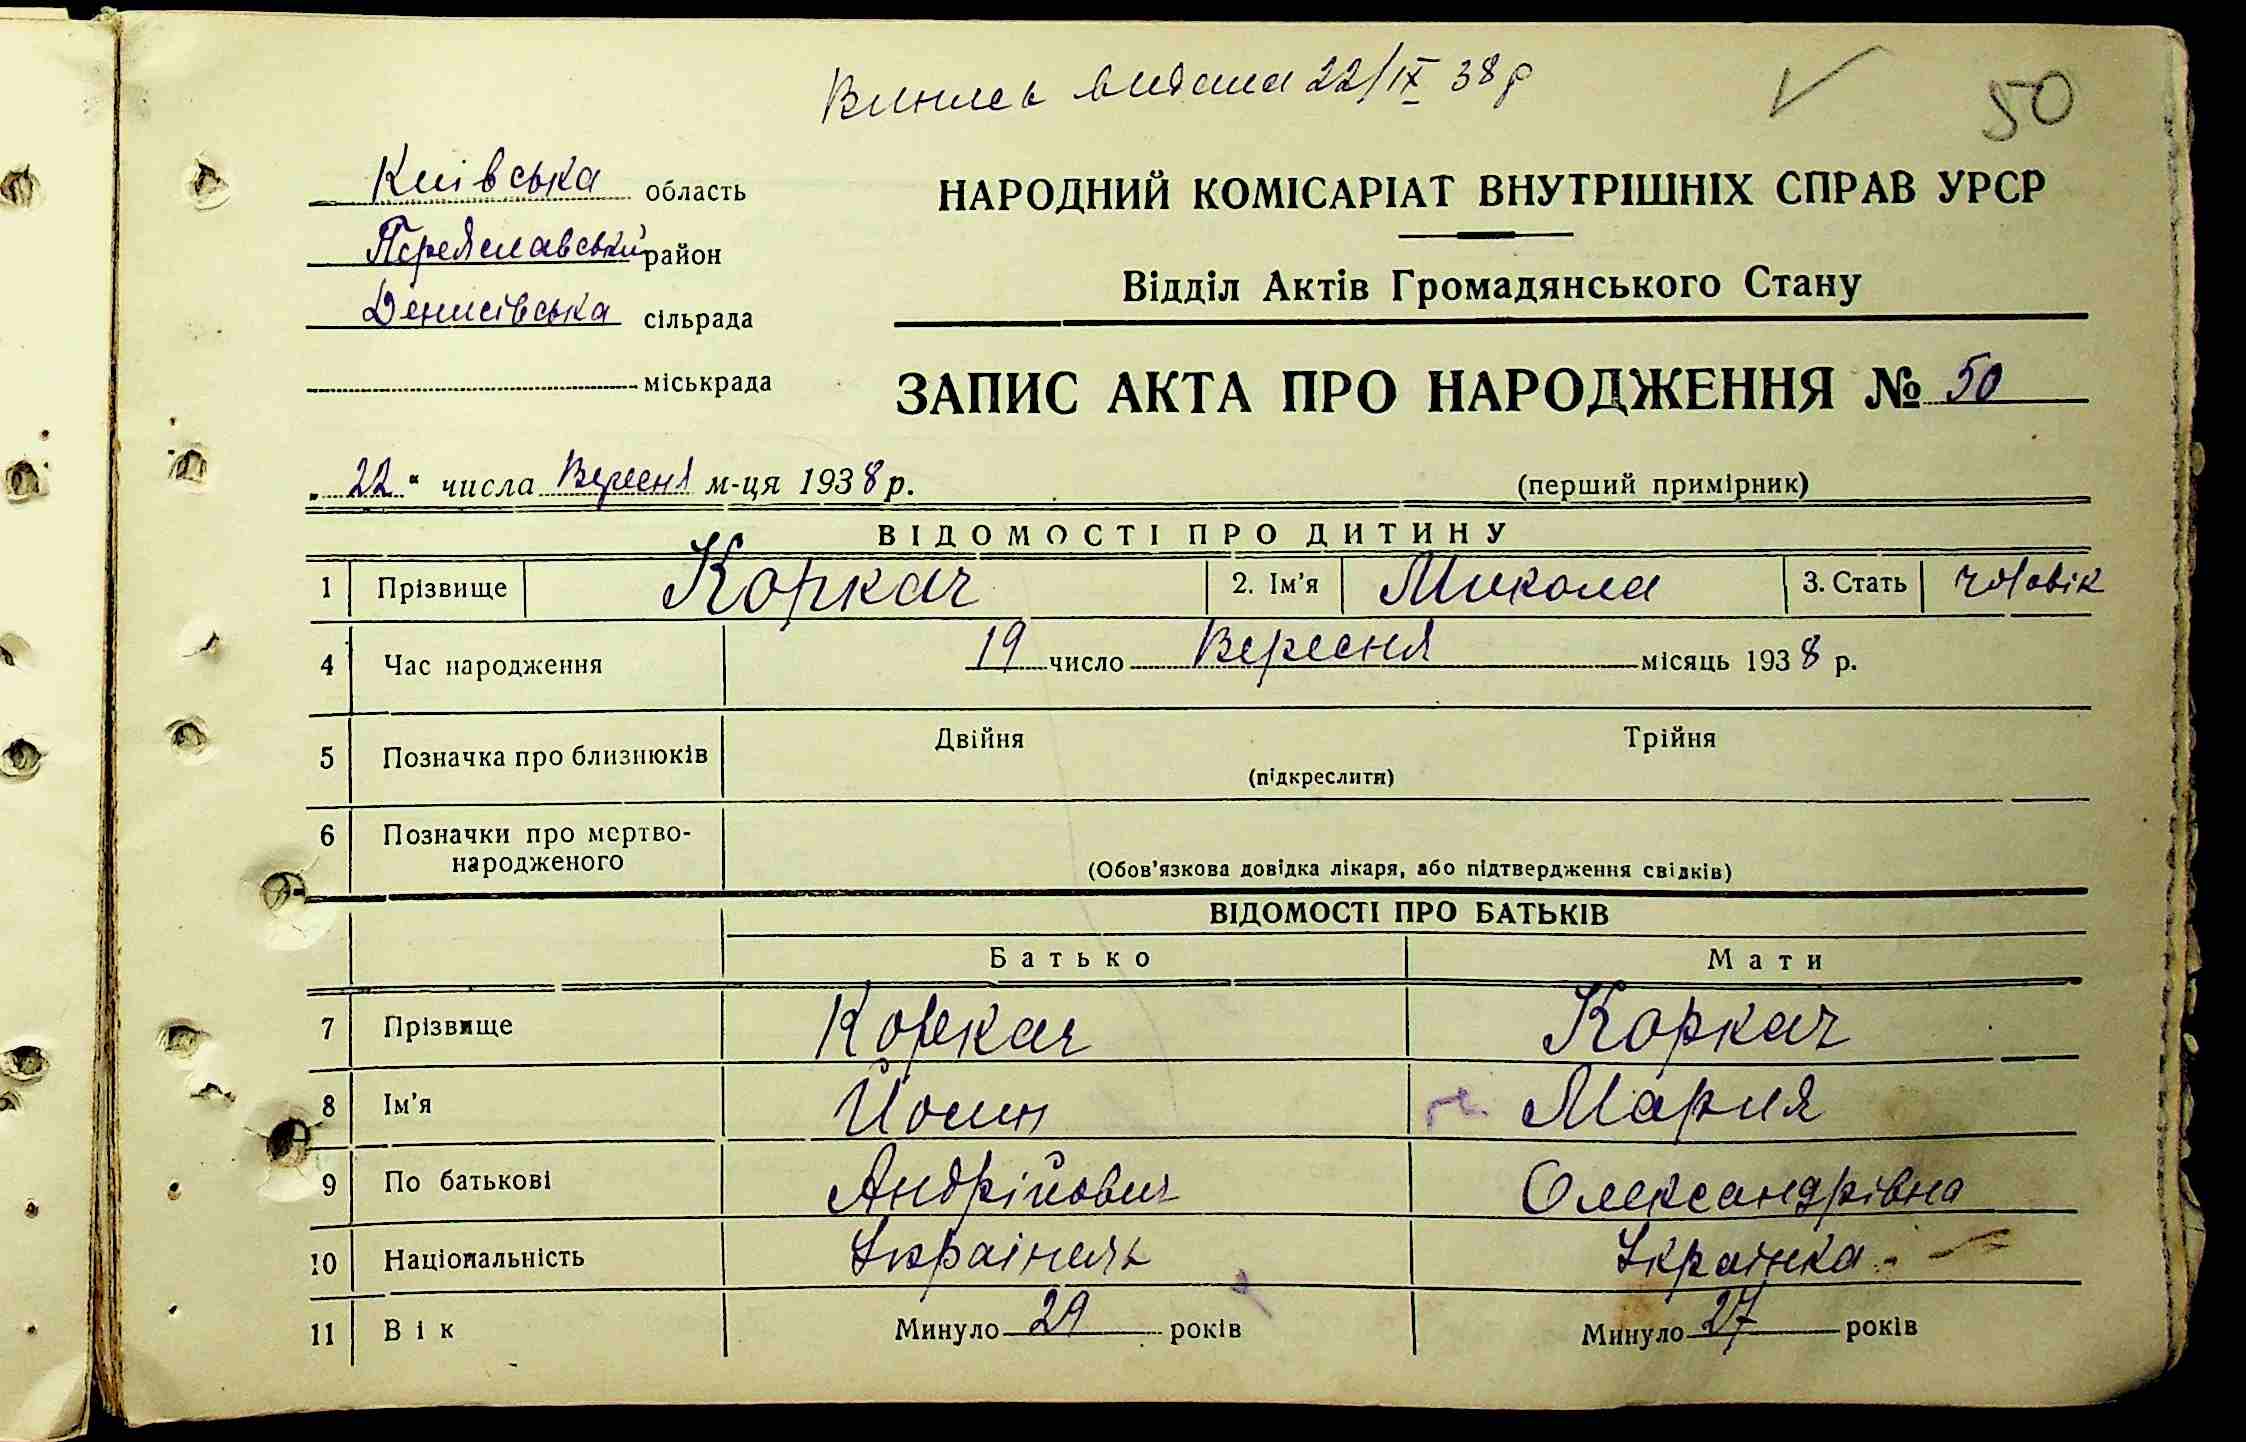 Випись видана 22/IX 38 р
50
Київська область
Переяславський район
Денисівська сільрада
міськрада
НАРОДНИЙ КОМІСАРІАТ ВНУТРІШНІХ СПРАВ УРСР
Відділ Актів Громадянського Стану
ЗАПИС АКТА ПРО НАРОДЖЕННЯ № 50
„22" числа Вересня м-ця 1938 р.
(перший примірник)
ВІДОМОСТІ ПРО ДИТИНУ
1 Прізвище Коркач 2. Ім'я Микола 3. Стать чоловік
4 Час народження 19 число Вересня місяць 1938 р.
5 Позначка про близнюків Двійня Трійня
(підкреслити)
6 Позначки про мертво-
народженого
(Обов'язкова довідка лікаря, або підтвердження свідків)
ВІДОМОСТІ ПРО БАТЬКІВ
Батько Мати
7 Прізвище Коркач Коркач
8 Ім'я Йосип Мария
9 По батькові Андрійович Олександрівна
10 Національність Українець Українка
11 Вік Минуло 29 років Минуло 27 років